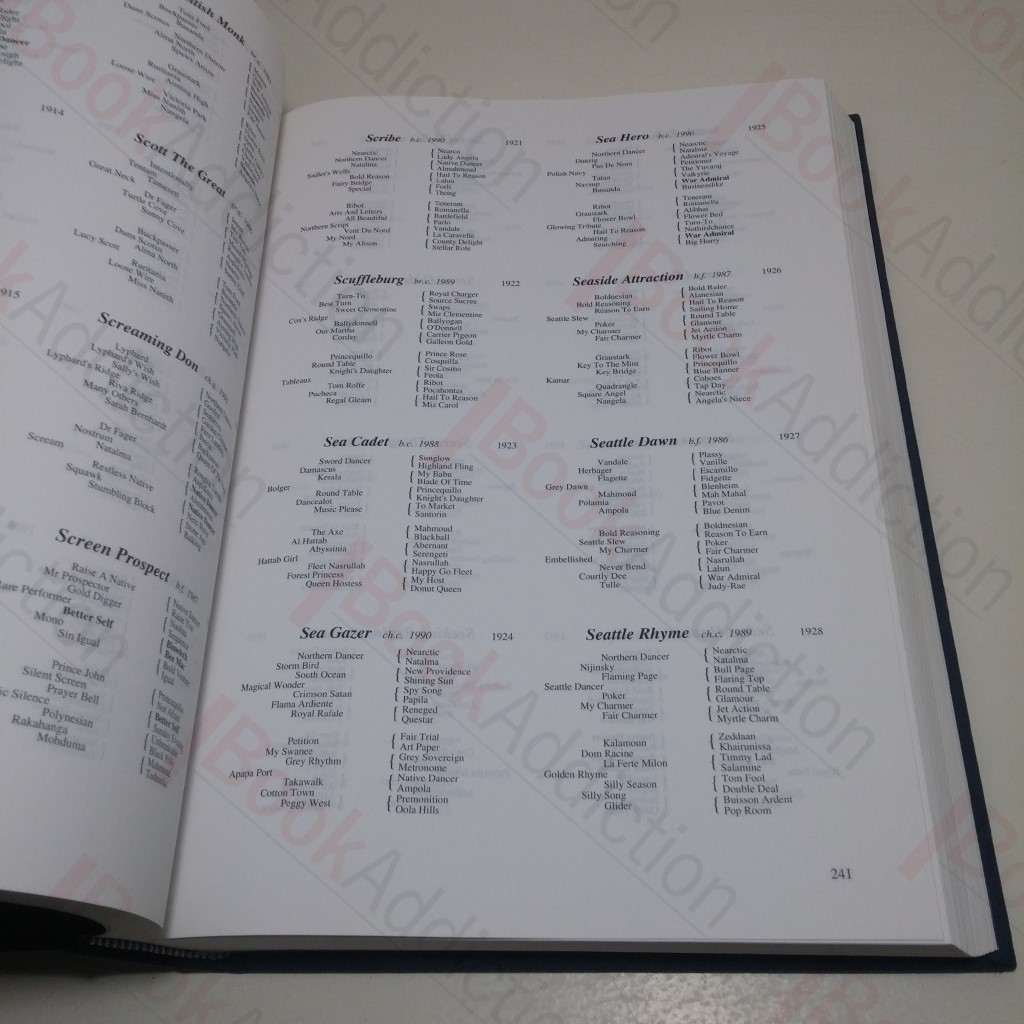 Scottish Monk
Tom Fool
Buckpasser
Busanda
Duns Scotus
Northern Dancer
Alma North
Graustark
Ruritania
Loose Wire
Victoria Park
Miss Nanith
Nangela
1914
Scott The Great
Intentionally
Tentam
Tamerett
Great Neck
Dr Fager
Turtle Cove
Sunny Cove
Buckpasser
Duns Scotus
Alma North
Lucy Scott
Ruritania
Loose Wire
Miss Nanith
1915
Screaming Don
Lyphard
Lyphard's Wish
Sally's Wish
Lyphard's Ridge
Riva Ridge
Many Others
Sarah Bernhardt
Dr Fager
Nostrum
Natalma
Scream
Restless Native
Squawk
Stumbling Block
Screen Prospect b.f. 1987
Raise A Native
Mr Prospector
Gold Digger
Rare Performer
Better Self
Mono
Sin Igual
Prince John
Silent Screen
Prayer Bell
Silence
Polynesian
Rakahanga
Mohduma
Scribe b.c. 1990 1921
Nearctic { Nearco
Northern Dancer Lady Angela
Natalma { Native Dancer
Almahmoud
Sadler's Wells
Bold Reason { Hail To Reason
Fairy Bridge Lalun
Special { Forli
Thong
Ribot { Tenerani
Arts And Letters Romanella
All Beautiful { Battlefield
Parlo
Northern Script
Vent Du Nord { Vandale
My Nord La Caravelle
My Alison { County Delight
Stellar Role
Scuffleburg br.c. 1989 1922
Turn-To { Royal Charger
Best Turn Source Sucree
Sweet Clementine { Swaps
Miz Clementine
Cox's Ridge
Ballydonnell { Ballyogan
Our Martha O'Donnell
Corday { Carrier Pigeon
Galleon Gold
Princequillo { Prince Rose
Round Table Cosquilla
Knight's Daughter { Sir Cosmo
Feola
Tableaux
Tom Rolfe { Ribot
Pucheca Pocahontas
Regal Gleam { Hail To Reason
Miz Carol
Sea Cadet b.c. 1988 1923
Sword Dancer { Sunglow
Damascus Highland Fling
Kerala { My Babu
Blade Of Time
Bolger
Round Table { Princequillo
Dancealot Knight's Daughter
Music Please { To Market
Santorin
The Axe { Mahmoud
Al Hattab Blackball
Abyssinia { Abernant
Serengeti
Hattab Girl
Fleet Nasrullah { Nasrullah
Forest Princess Happy Go Fleet
Queen Hostess { My Host
Donut Queen
Sea Gazer ch.c. 1990 1924
Northern Dancer { Nearctic
Storm Bird Natalma
South Ocean { New Providence
Shining Sun
Magical Wonder
Crimson Satan { Spy Song
Flama Ardiente Papila
Royal Rafale { Reneged
Questar
Petition { Fair Trial
My Swanee Art Paper
Grey Rhythm { Grey Sovereign
Metronome
Apapa Port
Takawalk { Native Dancer
Cotton Town Ampola
Peggy West { Premonition
Oola Hills
Sea Hero b.c. 1990 1925
Northern Dancer { Nearctic
Danzig Natalma
Pas De Nom { Admiral's Voyage
Petitioner
Polish Navy
Tatan { The Yuvaraj
Navsup Valkyrie
Busanda { War Admiral
Businesslike
Ribot { Tenerani
Graustark Romanella
Flower Bowl { Alibhai
Flower Bed
Glowing Tribute
Hail To Reason { Turn-To
Admiring Nothirdchance
Searching { War Admiral
Big Hurry
Seaside Attraction b.f. 1987 1926
Boldnesian { Bold Ruler
Bold Reasoning Alanesian
Reason To Earn { Hail To Reason
Sailing Home
Seattle Slew
Poker { Round Table
My Charmer Glamour
Fair Charmer { Jet Action
Myrtle Charm
Graustark { Ribot
Key To The Mint Flower Bowl
Key Bridge { Princequillo
Blue Banner
Kamar
Quadrangle { Cohoes
Square Angel Tap Day
Nangela { Nearctic
Angela's Niece
Seattle Dawn b.f. 1986 1927
Vandale { Plassy
Herbager Vanille
Flagette { Escamillo
Fidgette
Grey Dawn
Mahmoud { Blenheim
Polamia Mah Mahal
Ampola { Pavot
Blue Denim
Bold Reasoning { Boldnesian
Seattle Slew Reason To Earn
My Charmer { Poker
Fair Charmer
Embellished
Never Bend { Nasrullah
Courtly Dee Lalun
Tulle { War Admiral
Judy-Rae
Seattle Rhyme ch.c. 1989 1928
Northern Dancer { Nearctic
Nijinsky Natalma
Flaming Page { Bull Page
Flaring Top
Seattle Dancer
Poker { Round Table
My Charmer Glamour
Fair Charmer { Jet Action
Myrtle Charm
Kalamoun { Zeddaan
Dom Racine Khairunissa
La Ferte Milon { Timmy Lad
Salamine
Golden Rhyme
Silly Season { Tom Fool
Silly Song Double Deal
Glider { Buisson Ardent
Pop Room
241